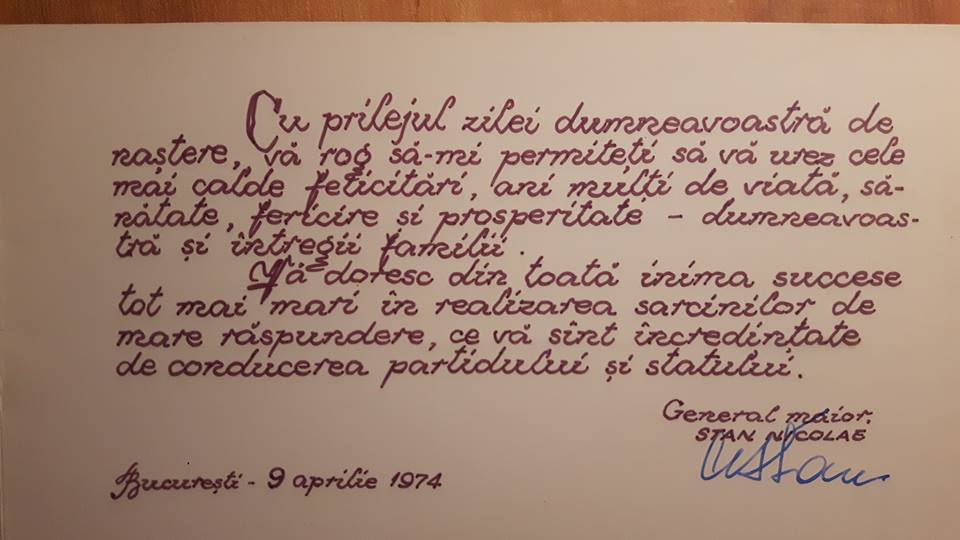 Cu prilejul zilei dumneavoastră de
naștere, vă rog să-mi permiteți să vă urez cele
mai calde felicitări, ani mulți de viață, să-
nătate, fericire și prosperitate - dumneavoas-
tră și întregii familii.
Vă doresc din toată inima succese
tot mai mari în realizarea sarcinilor de
mare răspundere, ce vă sînt încredințate
de conducerea partidului și statului.
General maior,
STAN NICOLAE
București - 9 aprilie 1974